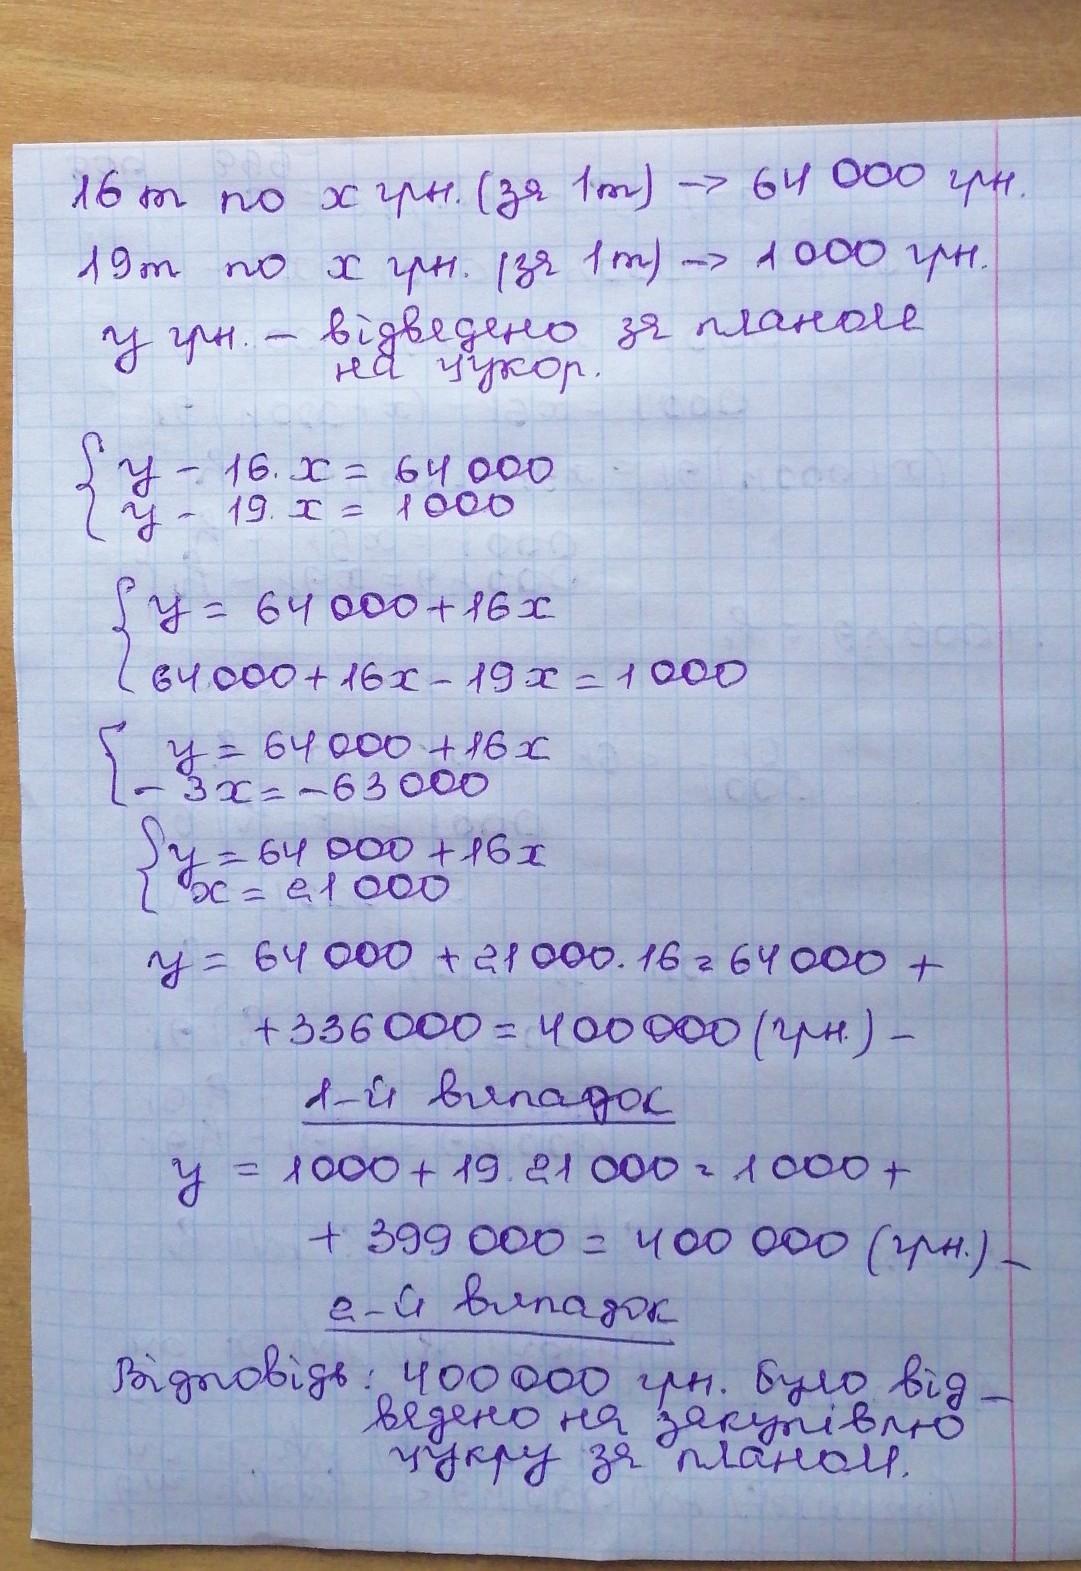 16т по x грн. (за 1т) -> 64 000 грн.
19т по x грн. (за 1т) -> 1 000 грн.
y грн. - відведено за планом
на цукор.
{ y - 16. x = 64 000
y - 19. x = 1000
{ y = 64 000 + 16x
64 000 + 16x - 19x = 1 000
{ y = 64 000 + 16x
- 3x = -63 000
{ y = 64 000 + 16x
x = 21 000
y = 64 000 + 21 000. 16 = 64 000 +
+ 336 000 = 400 000 (грн.) -
1-й випадок
y = 1000 + 19. 21 000 = 1 000 +
+ 399 000 = 400 000 (грн.) -
2-й випадок
Відповідь: 400 000 грн. було від-
ведено на закупівлю
цукру за планом.